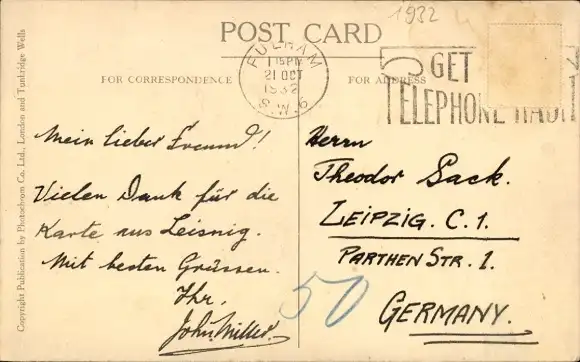 1932
POST CARD
FULHAM
1 15 PM
21 OCT
1932
S.W.6
GET
TELEPHONE HABIT
FOR CORRESPONDENCE
FOR ADDRESS
Copyright Publication by Photochrom Co. Ltd., London and Tunbridge Wells
Mein lieber Freund!
Vielen Dank für die
Karte aus Leisnig.
Mit besten Grüssen.
Ihr,
John Miller.
Herrn
Theodor Sack.
LEIPZIG. C.1.
PARTHEN STR. 1.
GERMANY.
50